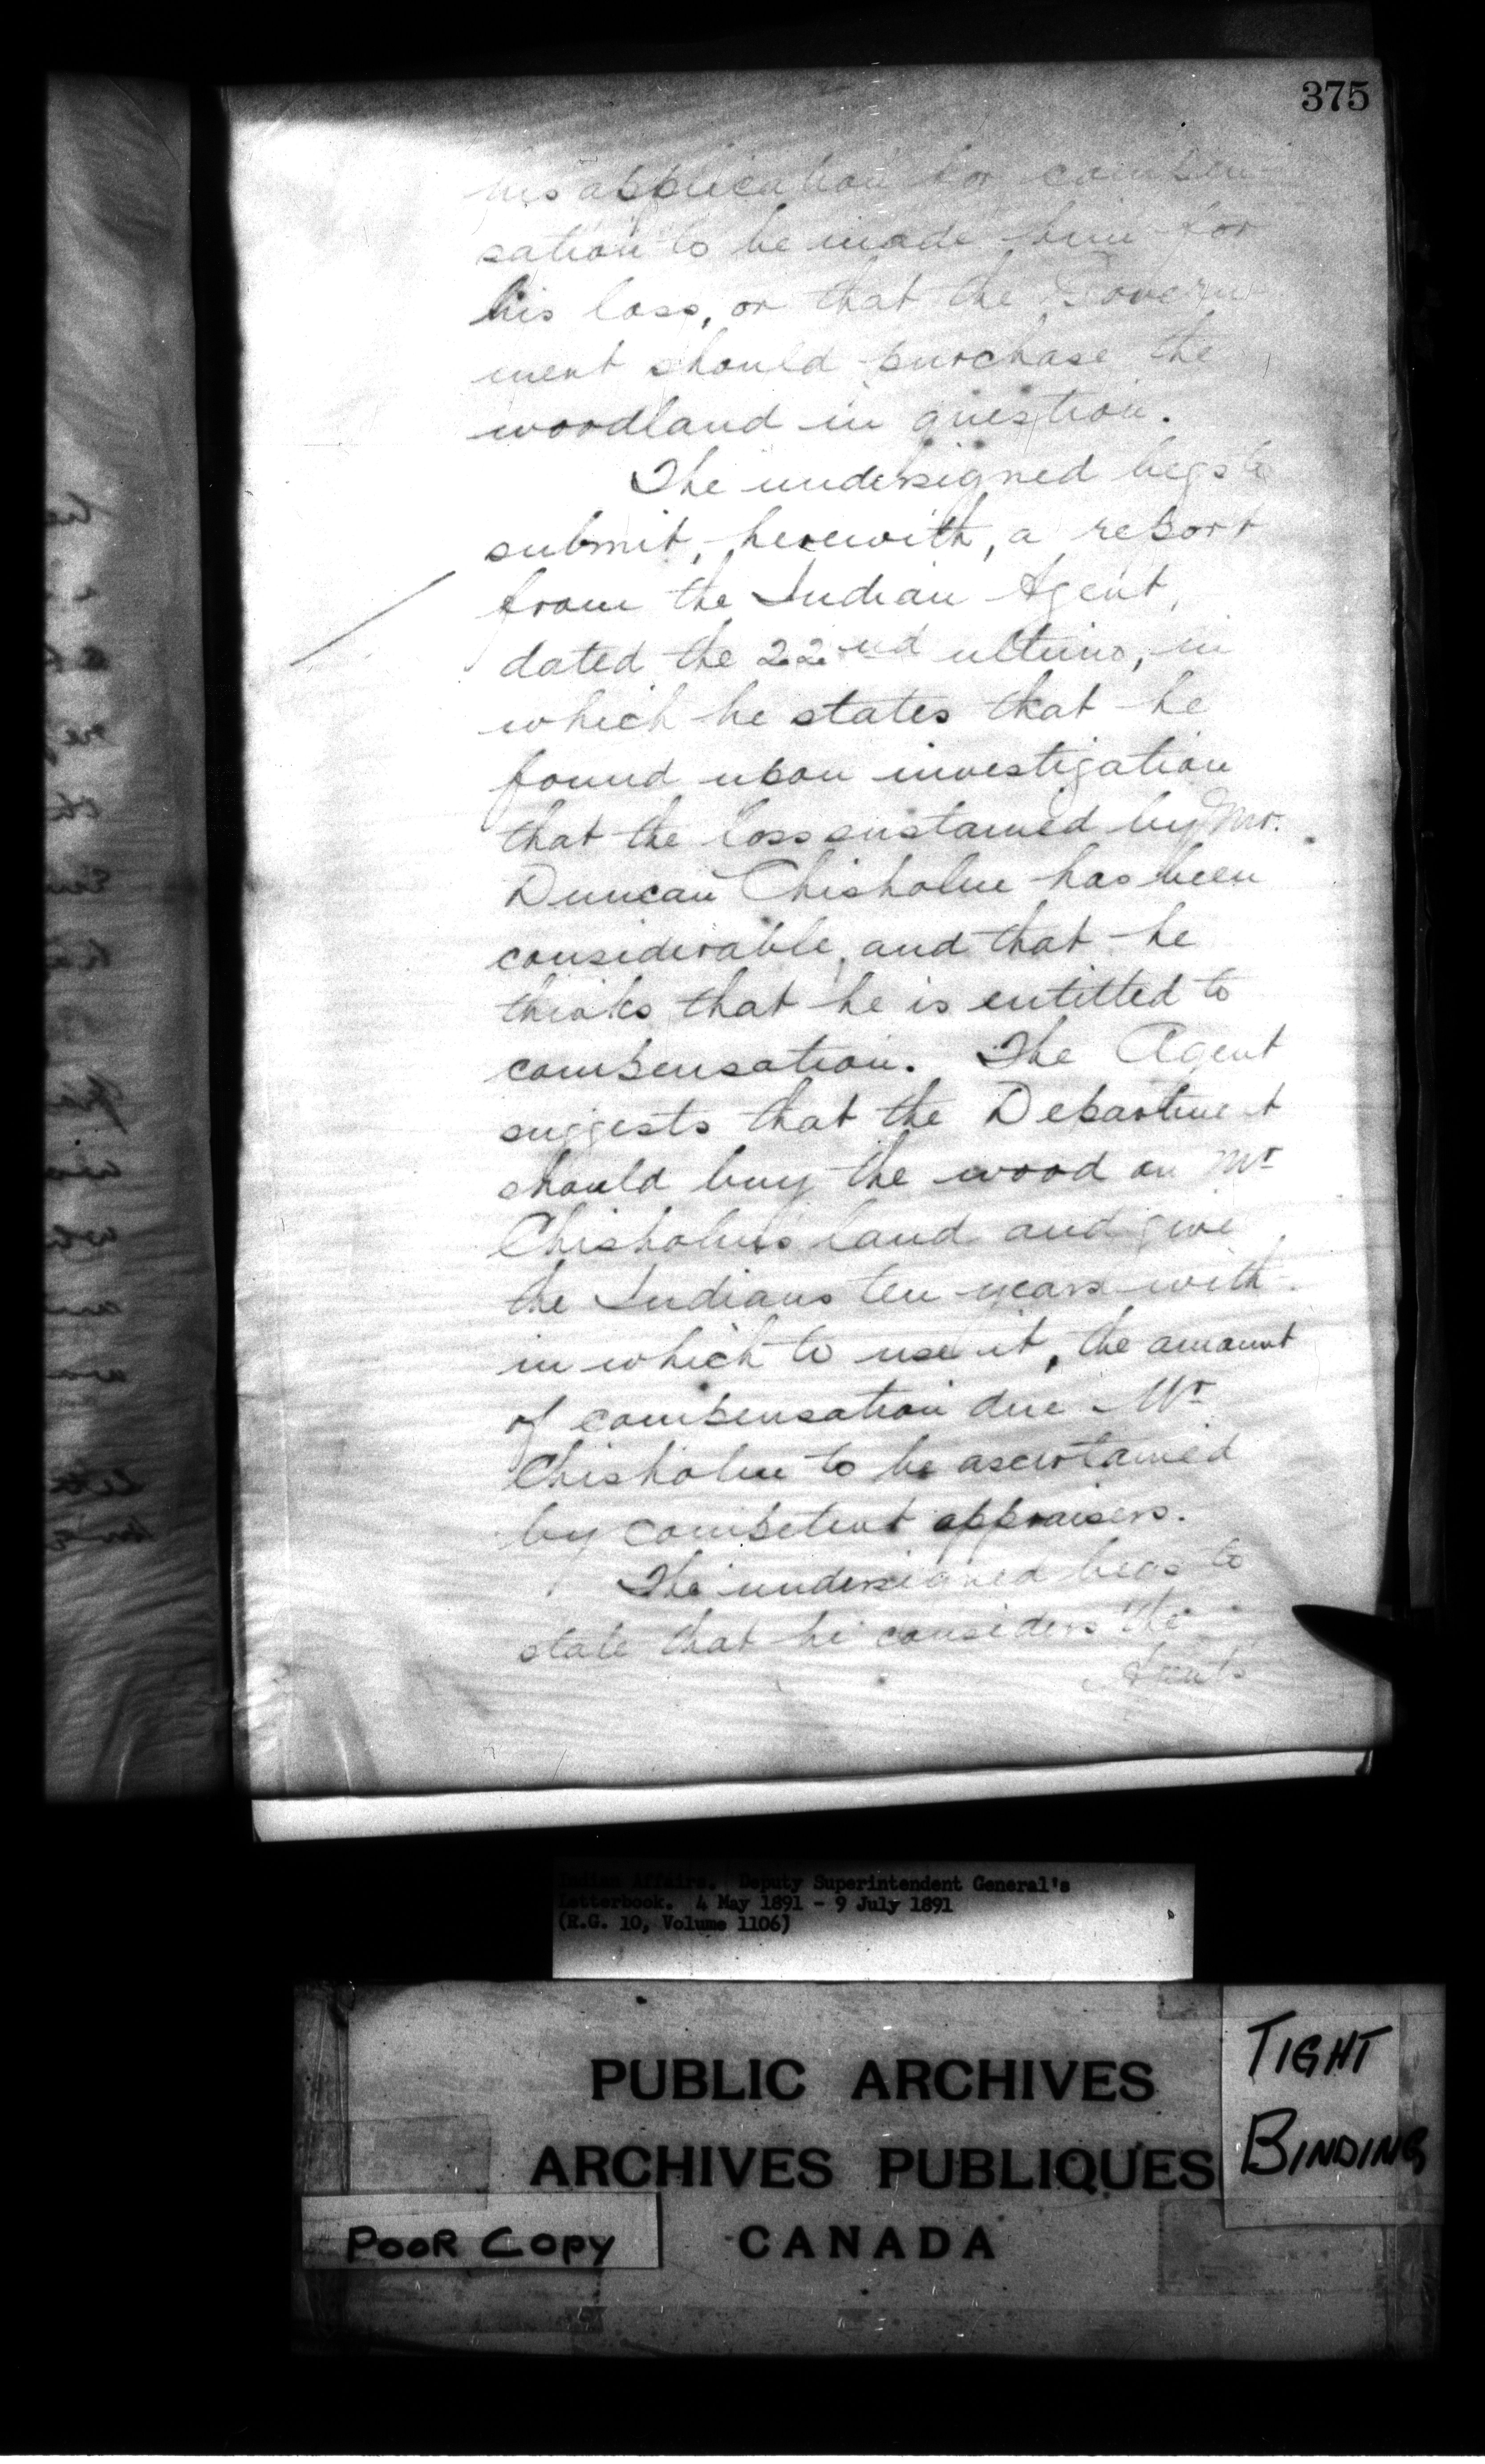 375
his application for compen-
sation to be made him for
his loss, or that the Govern-
ment should purchase the
woodland in question.
The undersigned begs to
submit, herewith, a report
from the Indian Agent,
dated the 22nd ultimo, in
which he states that he
found upon investigation
that the loss sustained by Mr.
Duncan Chisholm has been
considerable, and that he
thinks that he is entitled to
compensation. The Agent
suggests that the Department
should buy the wood on Mr
Chisholm's land and give
the Indians ten years with-
in which to use it, the amount
of compensation due Mr
Chisholm to be ascertained
by competent appraisers.
The undersigned begs to
state that he considers the
Agent's
Indian Affairs. Deputy Superintendent General's
Letterbook. 4 May 1891 - 9 July 1891
(R.G. 10, Volume 1106)
PUBLIC ARCHIVES
ARCHIVES PUBLIQUES
CANADA
TIGHT
BINDING
POOR COPY